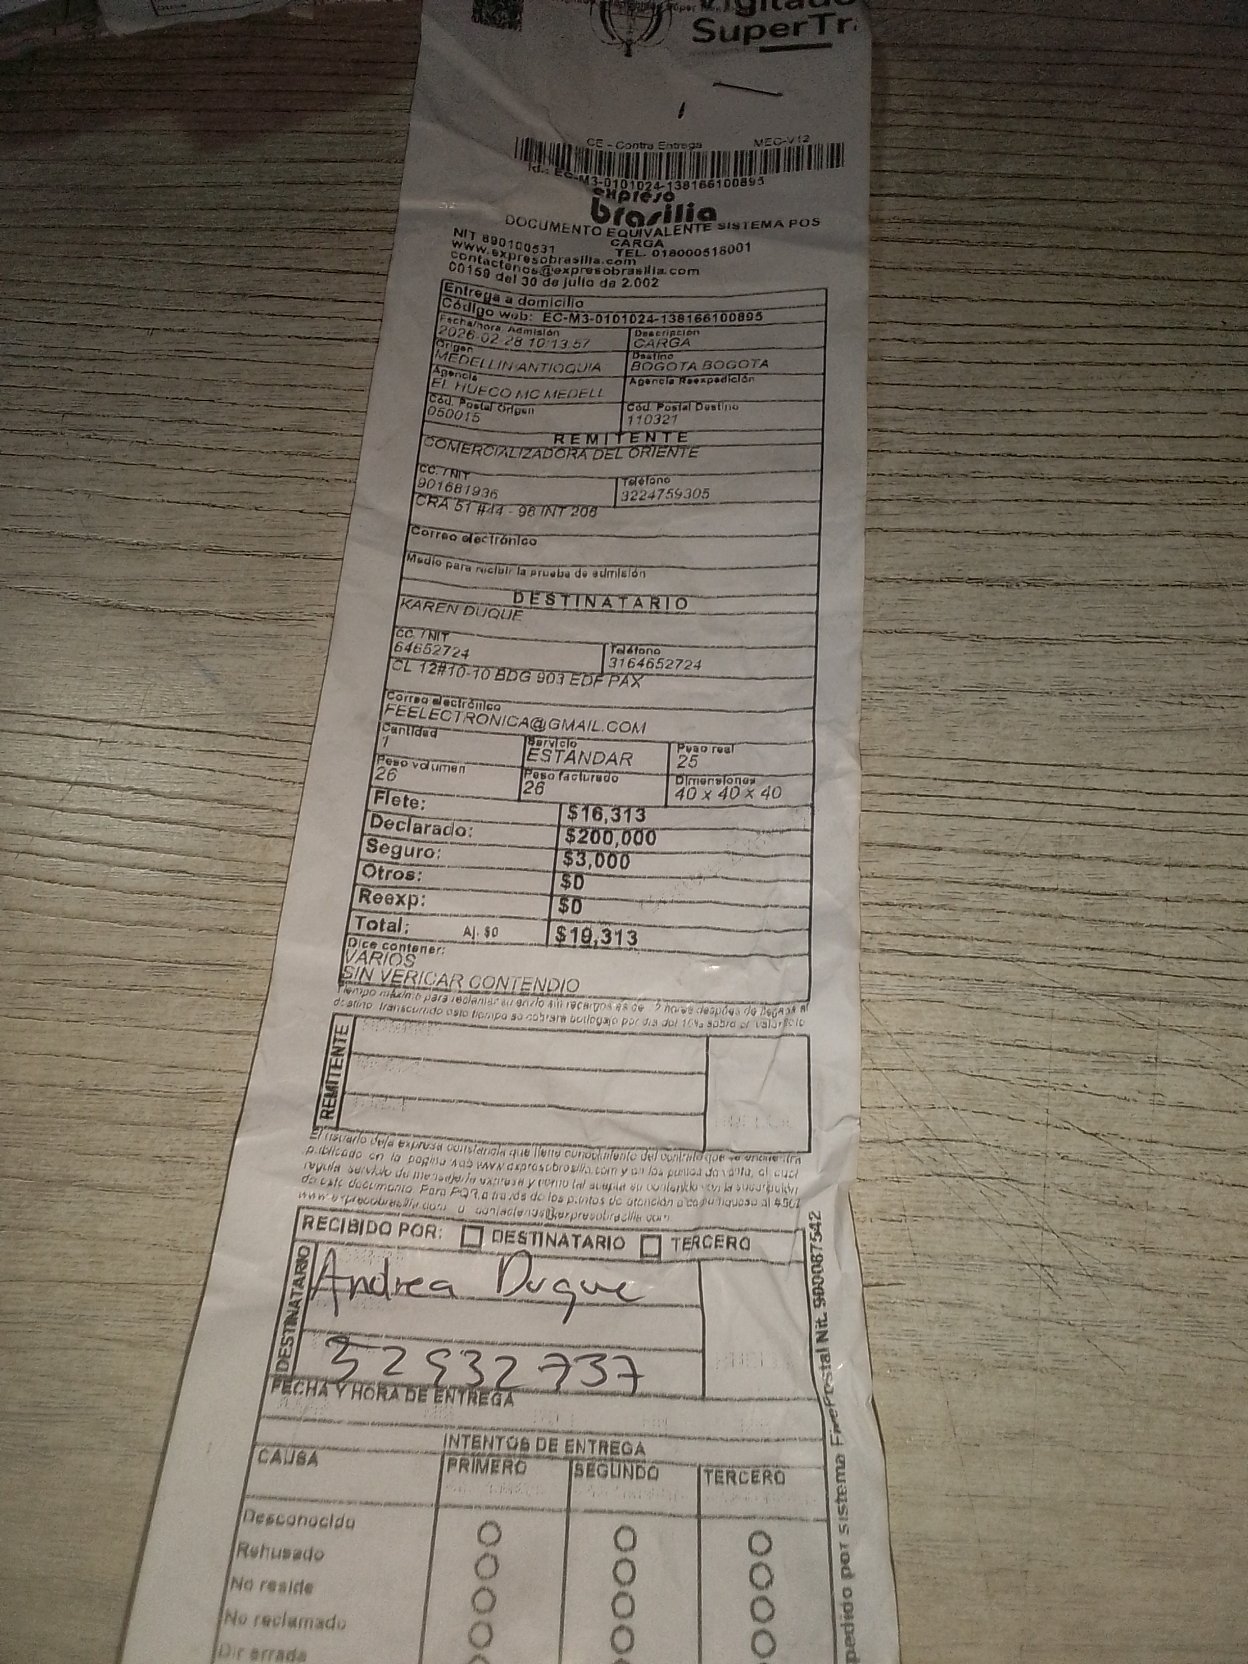 Vigilado
SuperTr
CE - Contra Entrega MEC-V12
Id.: EC-M3-0101024-138166100895
expreso
brasilia
DOCUMENTO EQUIVALENTE SISTEMA POS
CARGA
NIT 890100531 TEL. 018000518001
www.expresobrasilia.com
contactenos@expresobrasilia.com
00159 del 30 de julio de 2.002
Entrega a domicilio
Código web: EC-M3-0101024-138166100895
Fecha/hora Admisión Descripción
2026-02-28 10:13:57 CARGA
Origen Destino
MEDELLIN ANTIOQUIA BOGOTA BOGOTA
Agencia Agencia Reexpedición
EL HUECO MC MEDELL
Cód. Postal Origen Cód. Postal Destino
050015 110321
REMITENTE
COMERCIALIZADORA DEL ORIENTE
CC. / NIT Teléfono
901681936 3224759305
CRA 51 #44 - 96 INT 206
Correo electrónico
Medio para recibir la prueba de admisión
DESTINATARIO
KAREN DUQUE
CC. / NIT Teléfono
64652724 3164652724
CL 12#10-10 BDG 903 EDF PAX
Correo electrónico
FEELECTRONICA@GMAIL.COM
Cantidad Servicio Peso real
1 ESTANDAR 25
Peso volumen Peso facturado Dimensiones
26 26 40 x 40 x 40
Flete: $16,313
Declarado: $200,000
Seguro: $3,000
Otros: $0
Reexp: $0
Total: Aj. $0 $19,313
Dice contener:
VARIOS
SIN VERICAR CONTENDIO
Tiempo máximo para reclamar su envío sin recargos es de 72 horas despúes de llegada al
destino, transcurrido este tiempo se cobrara bodegaje por dia del 10% sobre el valor flete
REMITENTE
El usuario deja expresa constancia que tiene conocimiento del contrato que se encuentra
publicado en la pagina web www.expresobrasilia.com y en los puntos de venta, el cual
regula servicio de mensajeria expresa y como tal acepta su contenido con la suscripción
de este documento. Para PQR a través de los puntos de atención
www.expresobrasilia.com o contactenos@expresobrasilia.com
RECIBIDO POR: DESTINATARIO TERCERO
DESTINATARIO
Andrea Duque
52932737
FECHA Y HORA DE ENTREGA
INTENTOS DE ENTREGA
CAUSA PRIMERO SEGUNDO TERCERO
Desconocido
Rehusado
No reside
No reclamado
Dir errada
pedido por sistema FivePostal Nit. 900087542